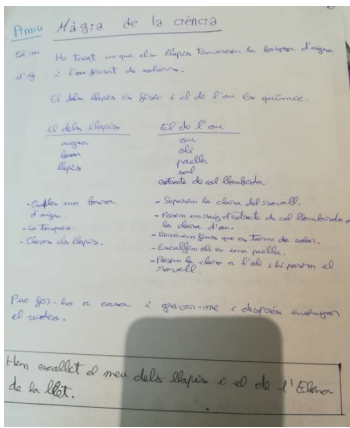 Arnau Màgia de la ciència
He triat un que els llapis travessen la bossa d'aigua
i l'ou ferint de colors.
El dels llapis és físic i el de l'ou és químic.
El dels llapis
aigua
bossa
llapis
El de l'ou
ou
oli
paella
sal
extracte de col llombarda
- Omples una bossa
d'aigua.
- La tanques.
- Claves els llapis.
- Separem la clara del rovell.
- Posem una mica d'extracte de col llombarda a
la clara d'ou.
- Remenem fins que es torni de color.
- Escalfem oli en una paella.
- Posem la clara a l'oli i hi posem el
rovell.
Puc fer-ho a casa i gravar-me i després envio
el vídeo.
Hem escollit el meu dels llapis i el de l'Elena
de la llet.